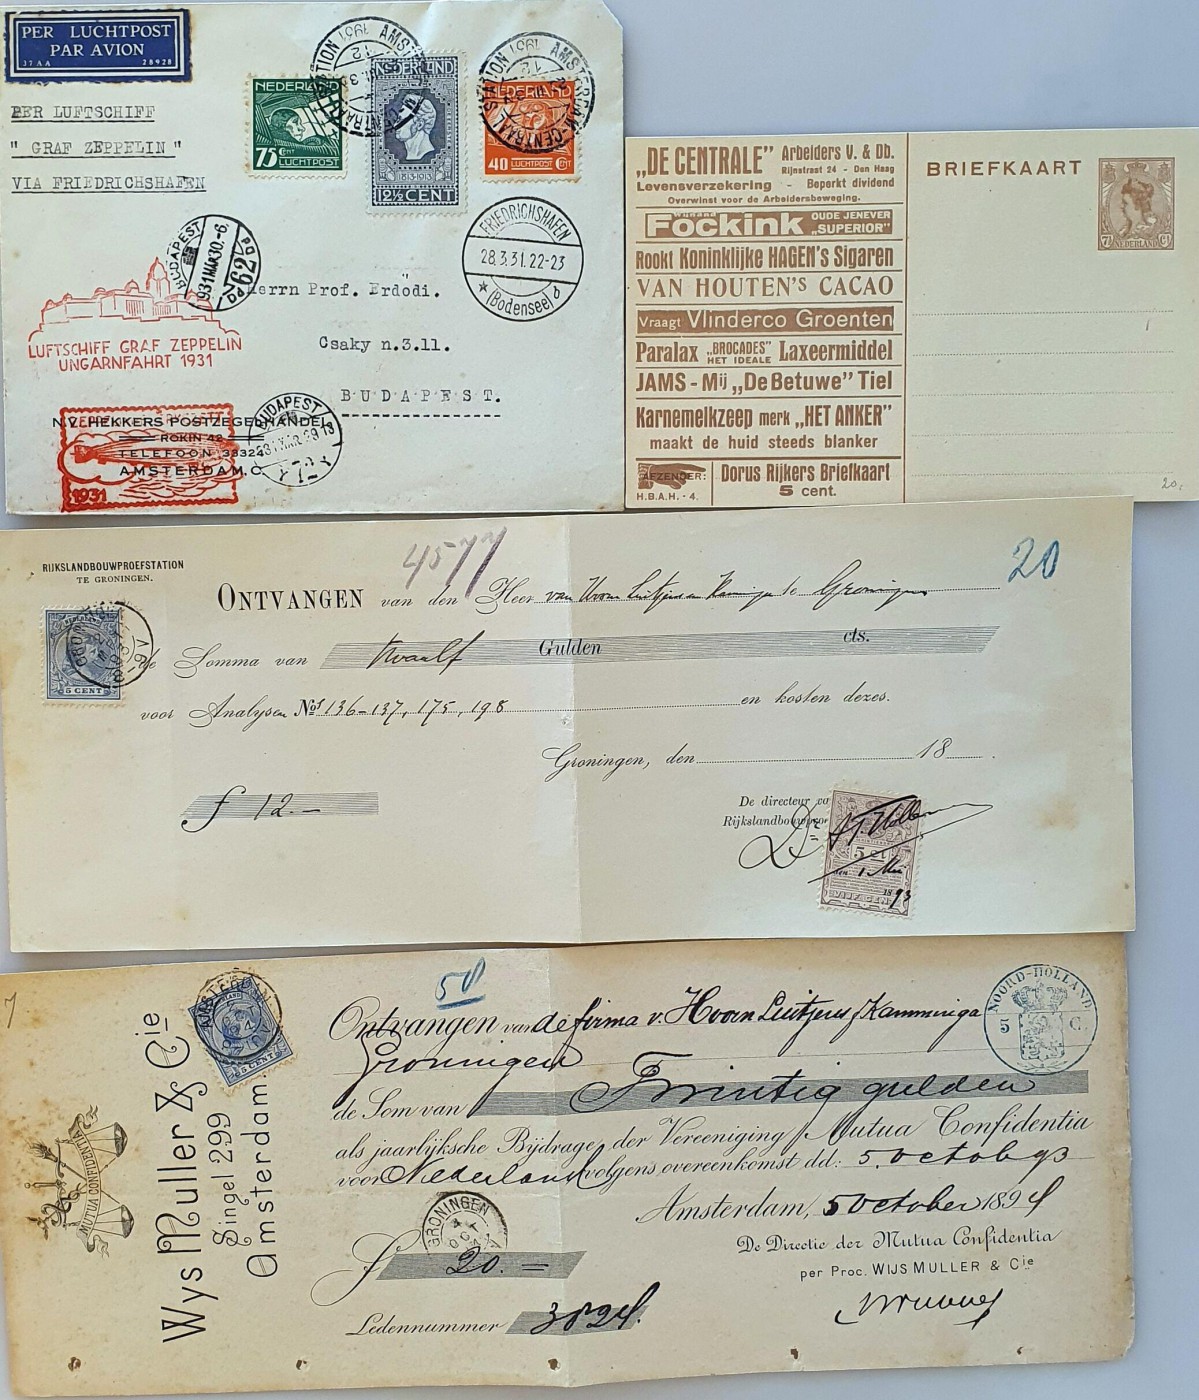 PER LUCHTPOST
PAR AVION
J7AA 28928
PER LUFTSCHIFF
" GRAF ZEPPELIN "
VIA FRIEDRICHSHAFEN
NEDERLAND
75 CENT LUCHTPOST
NEDERLAND
1813-1913
12½ CENT
NEDERLAND
40 LUCHTPOST CENT
AMSTERDAM-CENTRAAL STATION 1931
AMSTERDAM-CENTRAAL STATION 1931
FRIEDRICHSHAFEN
28.3.31.22-23
★ (Bodensee) d
BUDAPEST
931 MÁR 30.-6.
62
Herrn Prof. Erdödi.
Csaky n.3.11.
BUDAPEST.
LUFTSCHIFF GRAF ZEPPELIN
UNGARNFAHRT 1931
BUDAPEST
72
N.V. HEKKERS POSTZEGELHANDEL
ROKIN 42
TELEFOON 33324
AMSTERDAM.C.
1931
„DE CENTRALE" Arbeiders V. & Db.
Rijnstraat 24 - Den Haag
Levensverzekering - Beperkt dividend
Overwinst voor de Arbeidersbeweging.
Wijnand
Fockink OUDE JENEVER
„SUPERIOR"
Rookt Koninklijke HAGEN's Sigaren
VAN HOUTEN'S CACAO
Vraagt Vlinderco Groenten
Paralax „BROCADES" Laxeermiddel
HET IDEALE
JAMS - Mij „De Betuwe" Tiel
Karnemelkzeep merk „HET ANKER"
maakt de huid steeds blanker
AFZENDER:
H.B.A.H. - 4.
Dorus Rijkers Briefkaart
5 cent.
BRIEFKAART
7½ NEDERLAND Ct
20.
RIJKSLANDBOUWPROEFSTATION
TE GRONINGEN.
4577
20
ONTVANGEN van den Heer van Hoorn Luitjens en Kamminga te Groningen
de Somma van twaalf Gulden cts.
voor Analysen Nos 136-137, 175, 198 en kosten dezes.
Groningen, den 18 .
5 CENT
f 12.-
De directeur
Rijkslandbouwproe
Dr
5 ct
den 1 Mei
1893
VIJF CENT
50
Wys Muller & Cie
Singel 299
Amsterdam.
MUTUA CONFIDENTIA
AMSTERDAM
5 CENT
NOORD-HOLLAND
5 C.
Ontvangen van de firma v. Hoorn Luitjens / Kamminga
Groningen
de Som van Twintig gulden
als jaarlijksche Bijdrage der Vereeniging Mutua Confidentia
voor Nederland volgens overeenkomst dd: 5. octob 93
Amsterdam, 5 October 1894
De Directie der Mutua Confidentia
per Proc. WIJS MULLER & Cie
GRONINGEN
f 20.-
Ledennummer 3824.